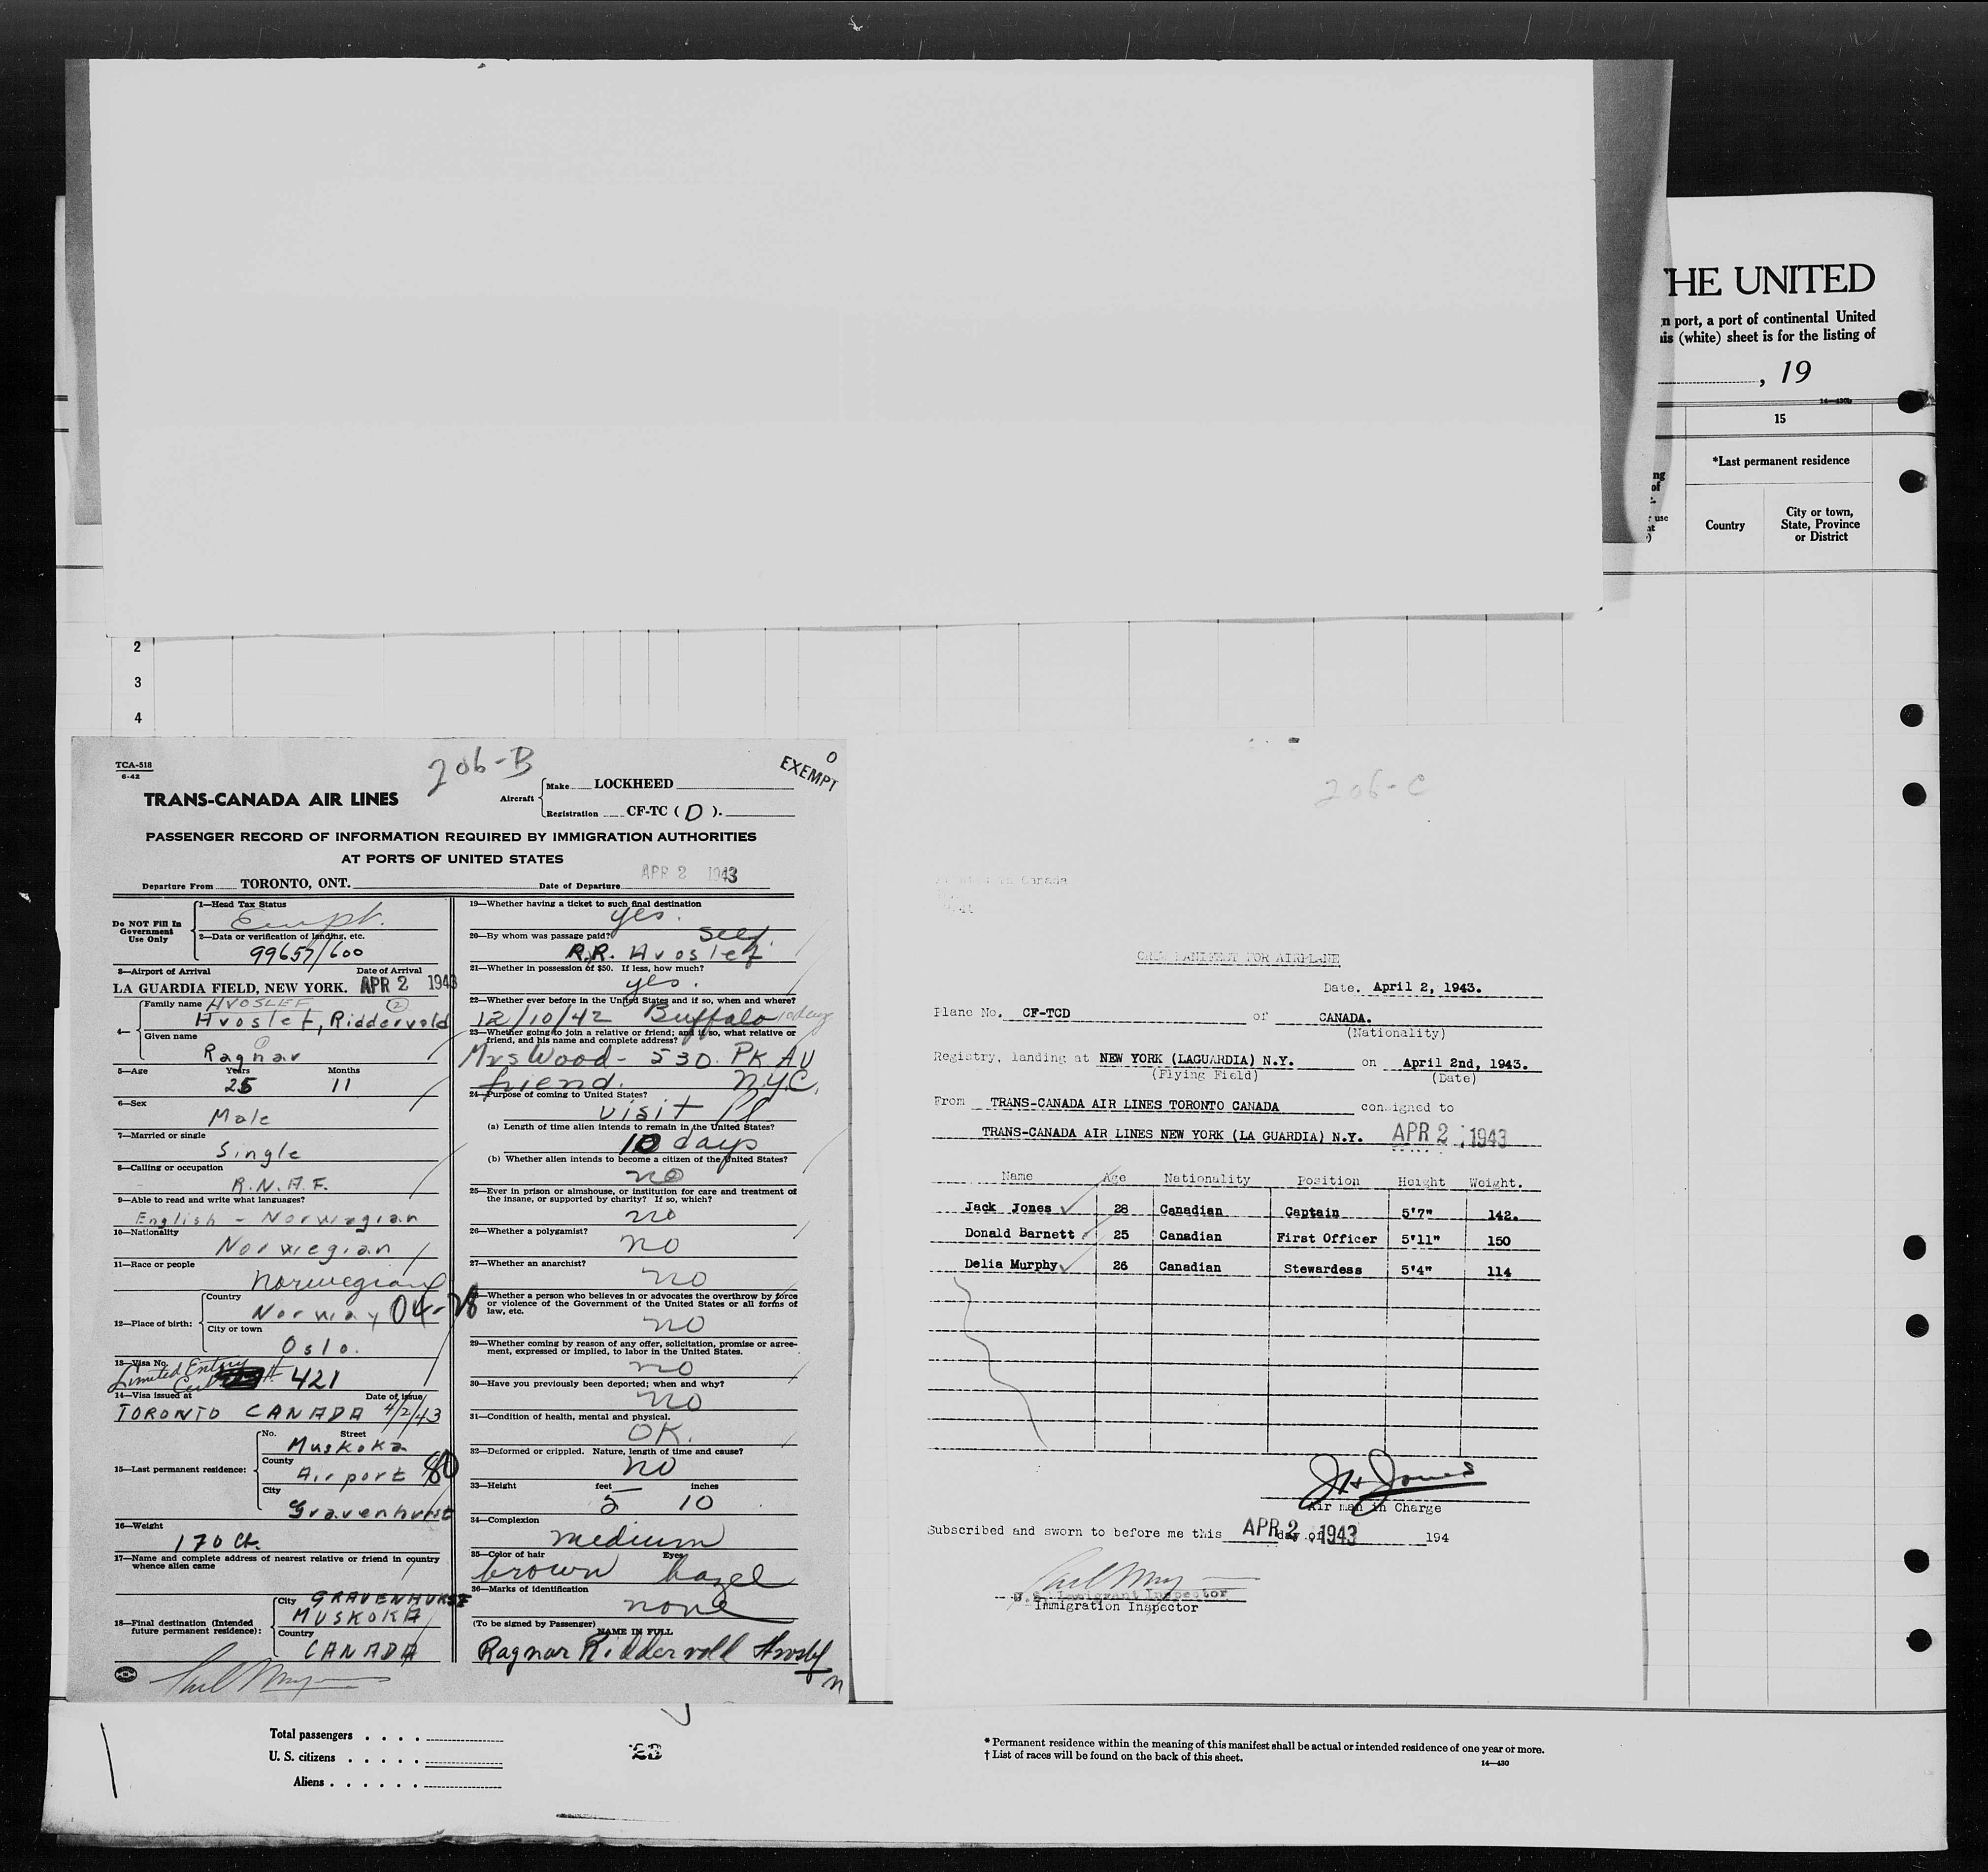 HE UNITED
n port, a port of continental United
is (white) sheet is for the listing of
, 19
14—430b
15
*Last permanent residence
ng
of
use
Country
City or town,
State, Province
or District
2
3
4
TCA-518
6-42
206-B
0
EXEMPT
TRANS-CANADA AIR LINES
Aircraft
Make LOCKHEED
Registration CF-TC ( D ).
PASSENGER RECORD OF INFORMATION REQUIRED BY IMMIGRATION AUTHORITIES
AT PORTS OF UNITED STATES
Departure From TORONTO, ONT.
Date of Departure APR 2 1943
Do NOT Fill In
Government
Use Only
1—Head Tax Status
Exmpt.
2—Data or verification of landing, etc.
99657/600
3—Airport of Arrival Date of Arrival
LA GUARDIA FIELD, NEW YORK. APR 2 1943
4—
Family name HVOSLEF (2)
Hvoslef, Riddervold
Given name
Ragnar
5—Age Years Months
25 11
6—Sex
Male
7—Married or single
Single
8—Calling or occupation
R.N.A.F.
9—Able to read and write what languages?
English - Norwegian
10—Nationality
Norwegian
11—Race or people
Norwegian
12—Place of birth:
Country
Norway 04-28
City or town
Oslo.
13—Visa No.
Limited Entry
Cert # 421
14—Visa issued at Date of issue
TORONTO CANADA 4/2/43
15—Last permanent residence:
No. Street
Muskoka
County
Airport 80
City
Gravenhurst
16—Weight
170
17—Name and complete address of nearest relative or friend in country
whence alien came
18—Final destination (Intended
future permanent residence):
City GRAVENHURST
MUSKOKA
Country
CANADA
19—Whether having a ticket to such final destination
yes.
20—By whom was passage paid? self.
R.R. Hvoslef
21—Whether in possession of $50. If less, how much?
yes.
22—Whether ever before in the United States and if so, when and where?
12/10/42 Buffalo 10 days
23—Whether going to join a relative or friend; and if so, what relative or
friend, and his name and complete address?
Mrs Wood - 530. PK AV
friend. N.Y.C.
24—Purpose of coming to United States?
visit Pl
(a) Length of time alien intends to remain in the United States?
10 days
(b) Whether alien intends to become a citizen of the United States?
no
25—Ever in prison or almshouse, or institution for care and treatment of
the insane, or supported by charity? If so, which?
no
26—Whether a polygamist?
no
27—Whether an anarchist?
no
—Whether a person who believes in or advocates the overthrow by force
or violence of the Government of the United States or all forms of
law, etc.
no
29—Whether coming by reason of any offer, solicitation, promise or agree-
ment, expressed or implied, to labor in the United States.
no
30—Have you previously been deported; when and why?
no
31—Condition of health, mental and physical.
OK.
32—Deformed or crippled. Nature, length of time and cause?
no
33—Height feet inches
5 10
34—Complexion
medium
35—Color of hair Eyes
brown hazel
36—Marks of identification
none
(To be signed by Passenger)
NAME IN FULL
Ragnar Riddervold Hvoslef
206-C
in Canada
CREW MANIFEST FOR AIRPLANE
Date. April 2, 1943.
Plane No. CF-TCD of CANADA.
(Nationality)
Registry, landing at NEW YORK (LAGUARDIA) N.Y. on April 2nd, 1943.
(Flying Field) (Date)
From TRANS-CANADA AIR LINES TORONTO CANADA consigned to
TRANS-CANADA AIR LINES NEW YORK (LA GUARDIA) N.Y. APR 2 1943
Name Age Nationality Position Height Weight.
Jack Jones 28 Canadian Captain 5'7" 142.
Donald Barnett 25 Canadian First Officer 5'11" 150
Delia Murphy 26 Canadian Stewardess 5'4" 114
JH Jones
Air man in Charge
Subscribed and sworn to before me this APR 2 1943 day of 194
U.S. Immigrant Inspector
Immigration Inspector
Total passengers . . . .
U. S. citizens . . . . .
Aliens . . . . . .
23
* Permanent residence within the meaning of this manifest shall be actual or intended residence of one year or more.
† List of races will be found on the back of this sheet.
14—430